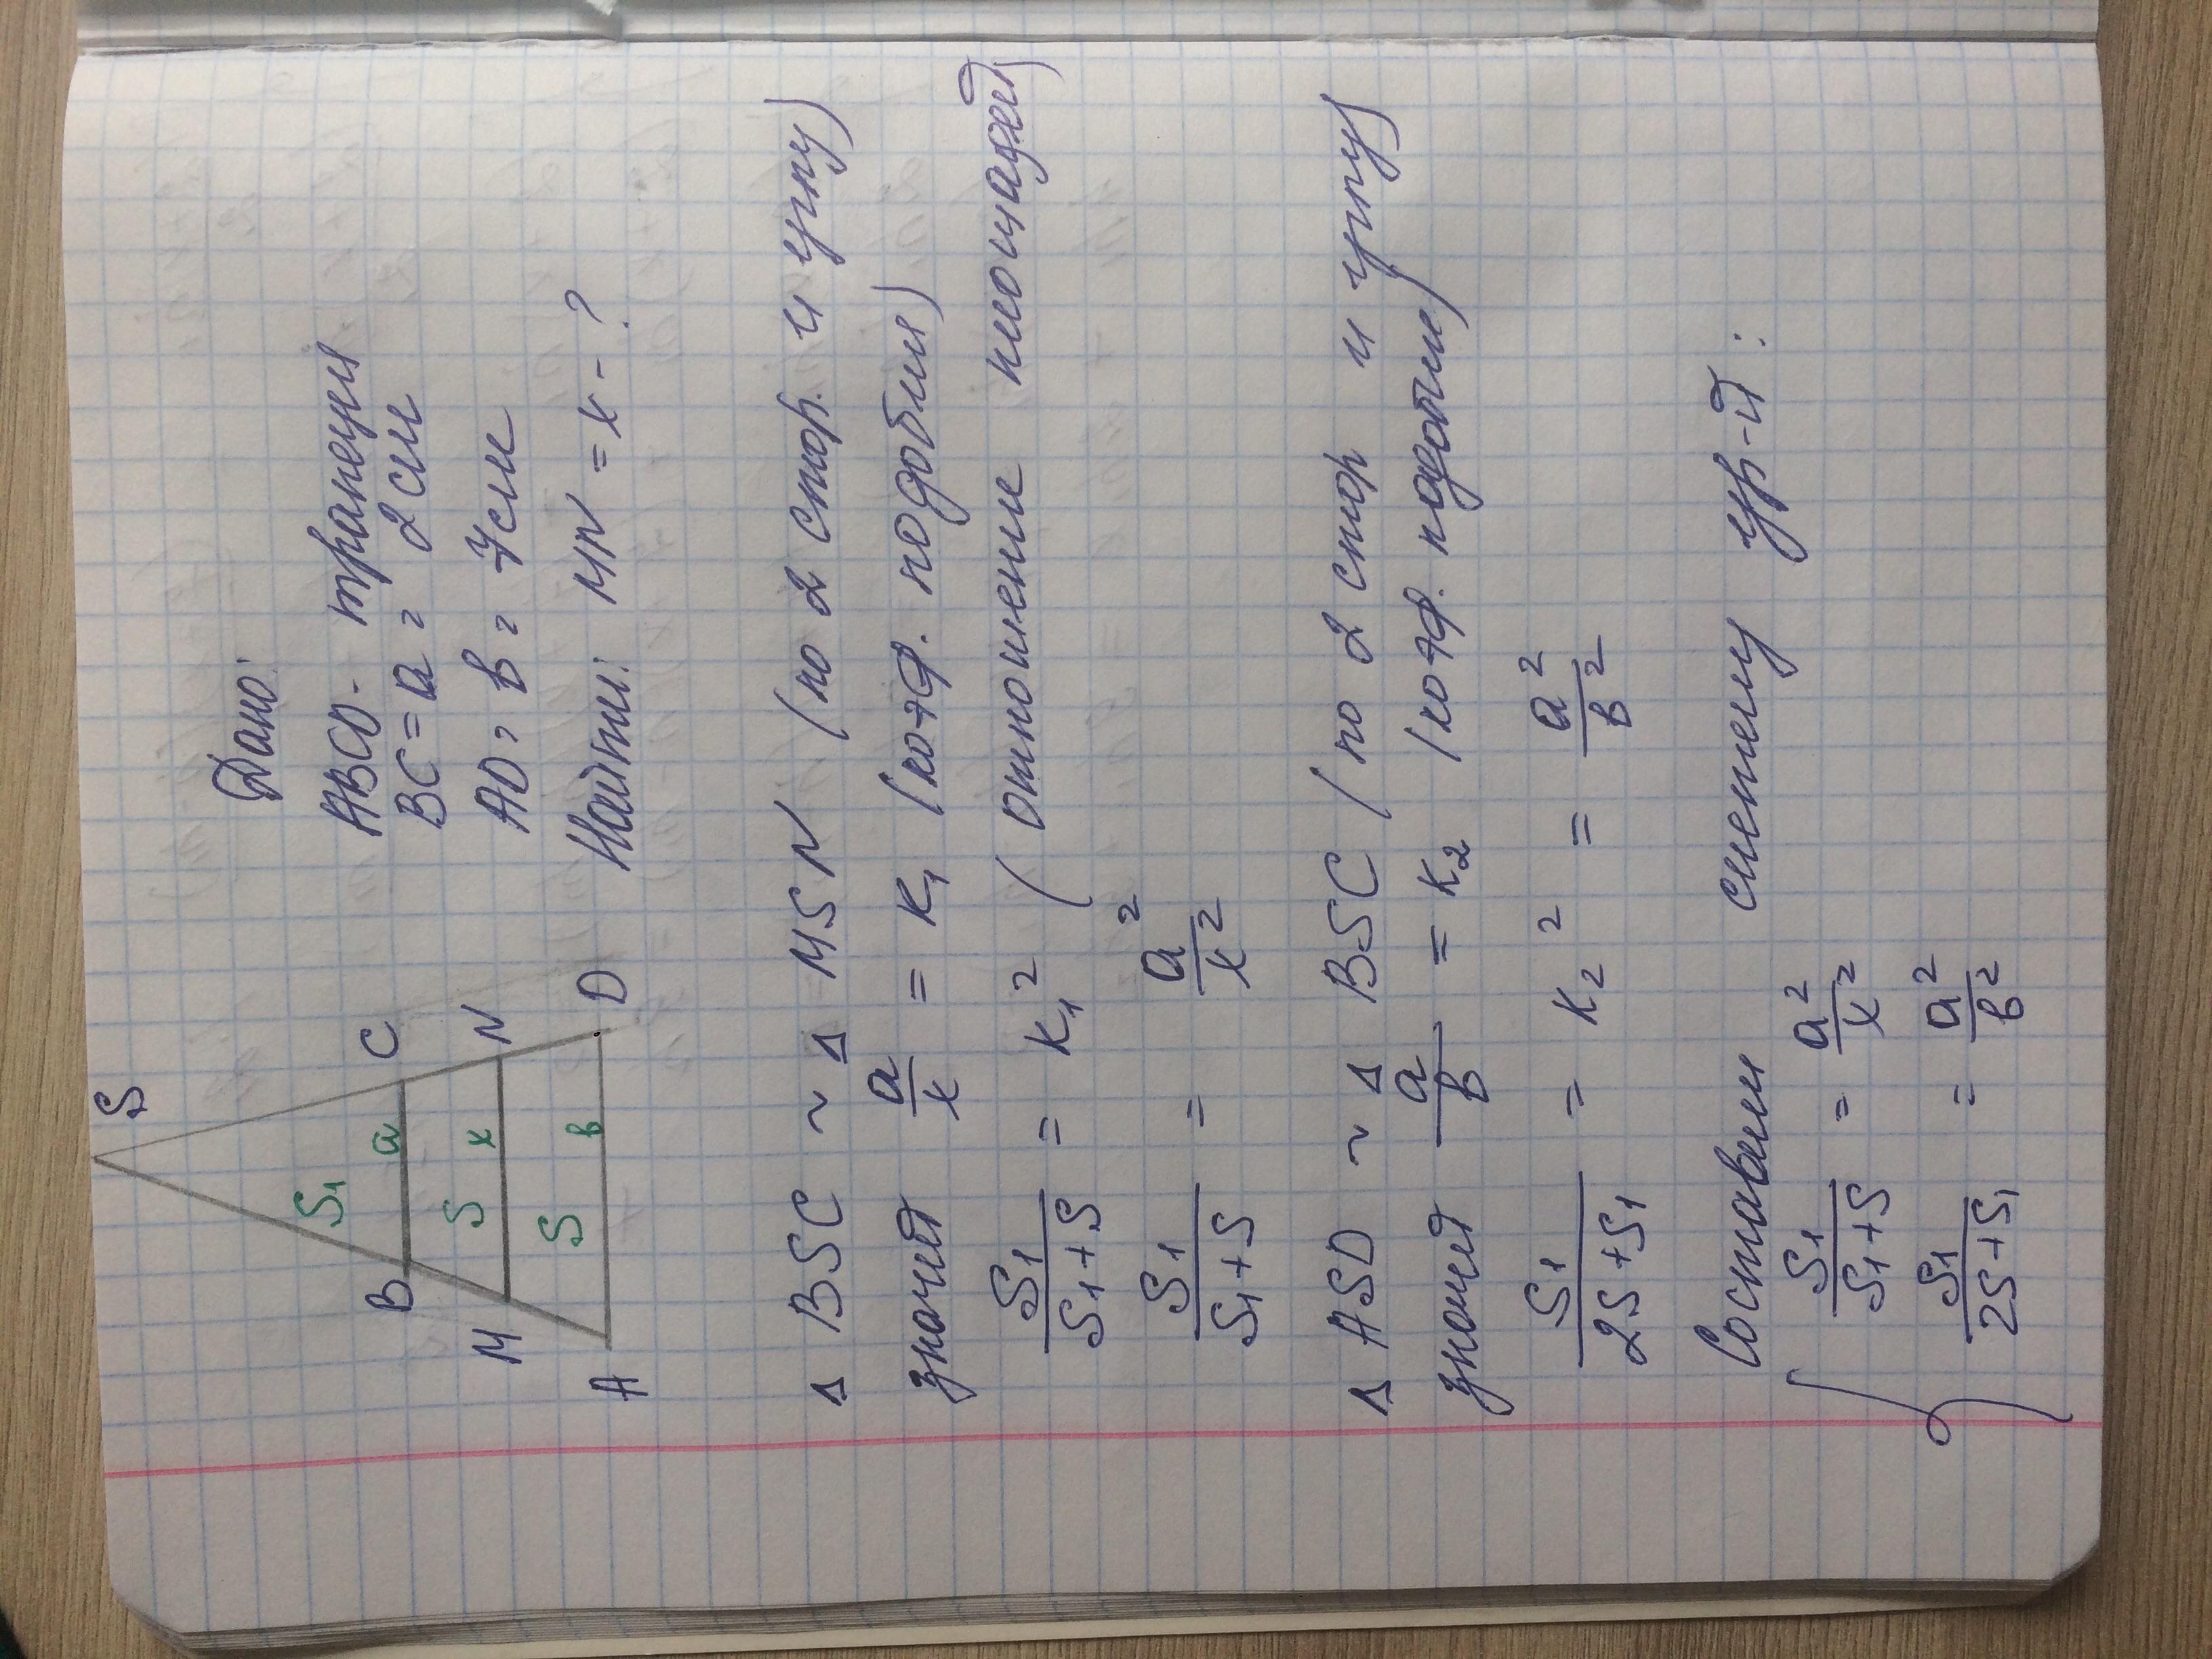 S
S₁
B a C
S x
M N
S в
A D
Дано:
ABCD - трапеция
BC = a = 2 см
AD = в = 7 см
Найти: MN = x - ?
Δ BSC ~ Δ MSN (по 2 стор. и углу)
значит a/x = K₁ (коэф. подобия)
S₁/(S₁+S) = K₁² (отношение площадей)
S₁/(S₁+S) = a²/x²
Δ ASD ~ Δ BSC (по 2 стор и углу)
значит a/в = K₂ (коэф. подобия)
S₁/(2S+S₁) = K₂² = a²/в²
Составим систему ур-й:
{ S₁/(S₁+S) = a²/x²
S₁/(2S+S₁) = a²/в²